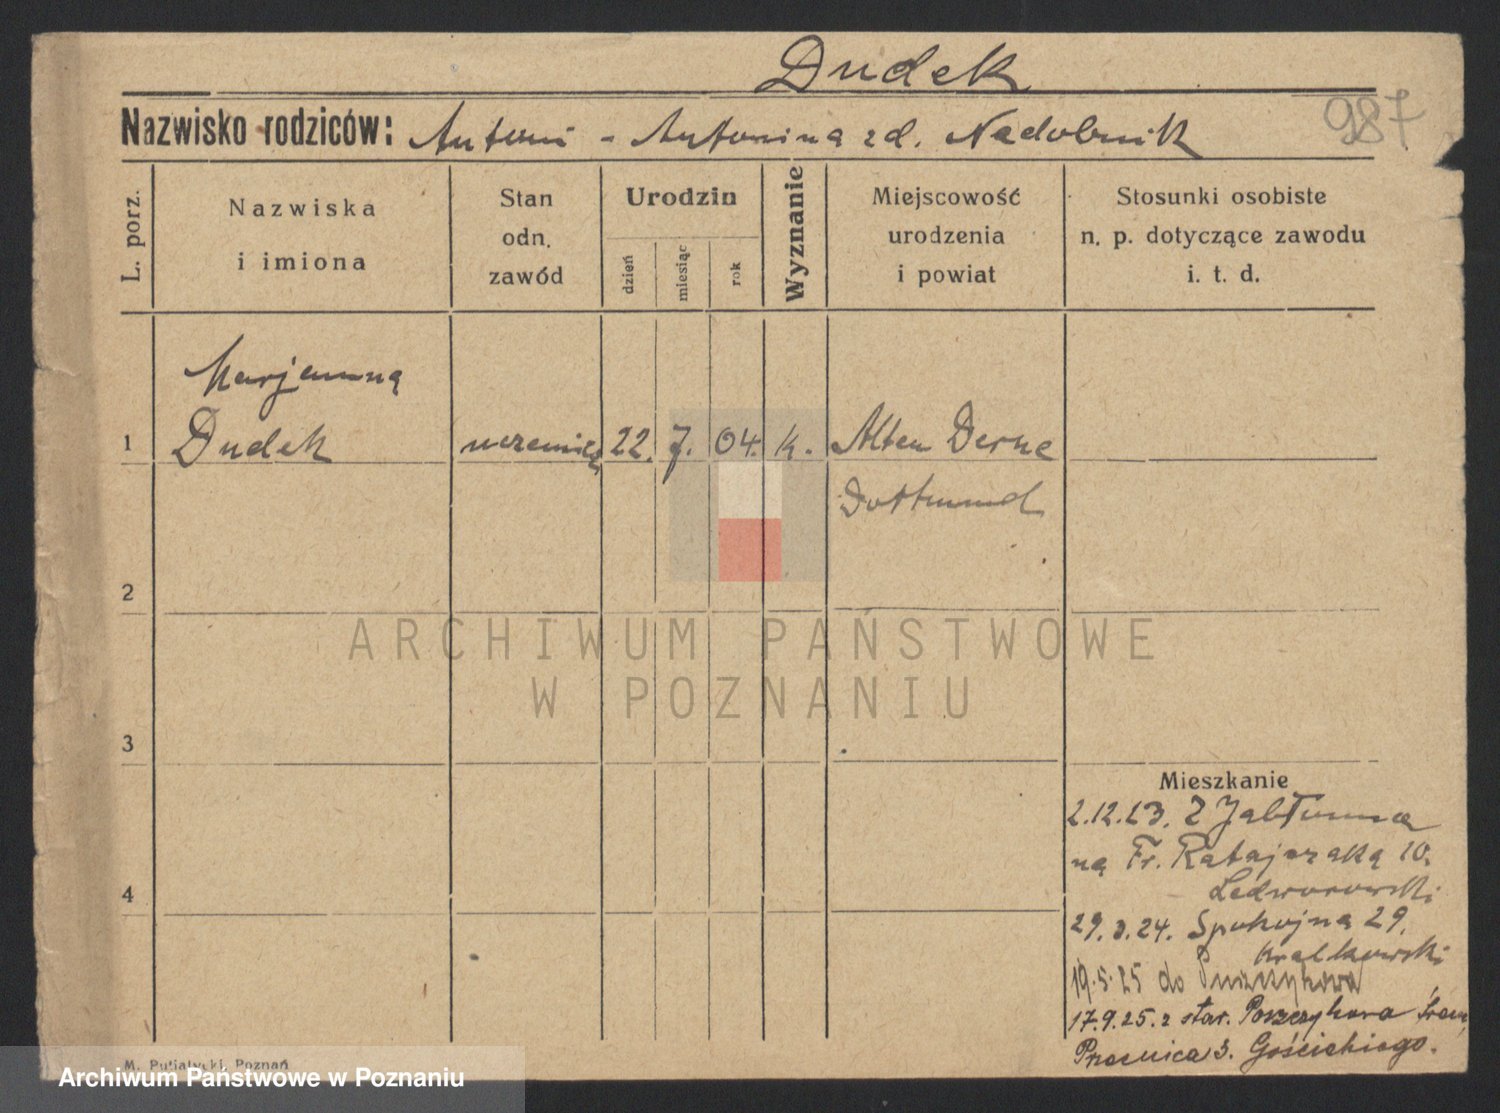 Dudek
987
Nazwisko rodziców: Antoni - Antonina zd. Nadobnik
L. porz.
Nazwiska
i imiona
Stan
odn.
zawód
Urodzin
dzień
miesiąc
rok
Wyznanie
Miejscowość
urodzenia
i powiat
Stosunki osobiste
n. p. dotyczące zawodu
i. t. d.
Marjanna
1 Dudek 22. 7. 04. k. Alten Derne
Dortmund
2
ARCHIWUM PAŃSTWOWE
W POZNANIU
3
Mieszkanie
2.12.23. Z Jabłonna
na Fr. Ratajczaka 10.
4
29.3.24. Spokojna 29.
19.5.25 do
17.9.25. z star.
3. Gościckiego.
M. Putiatycki, Poznań
Archiwum Państwowe w Poznaniu